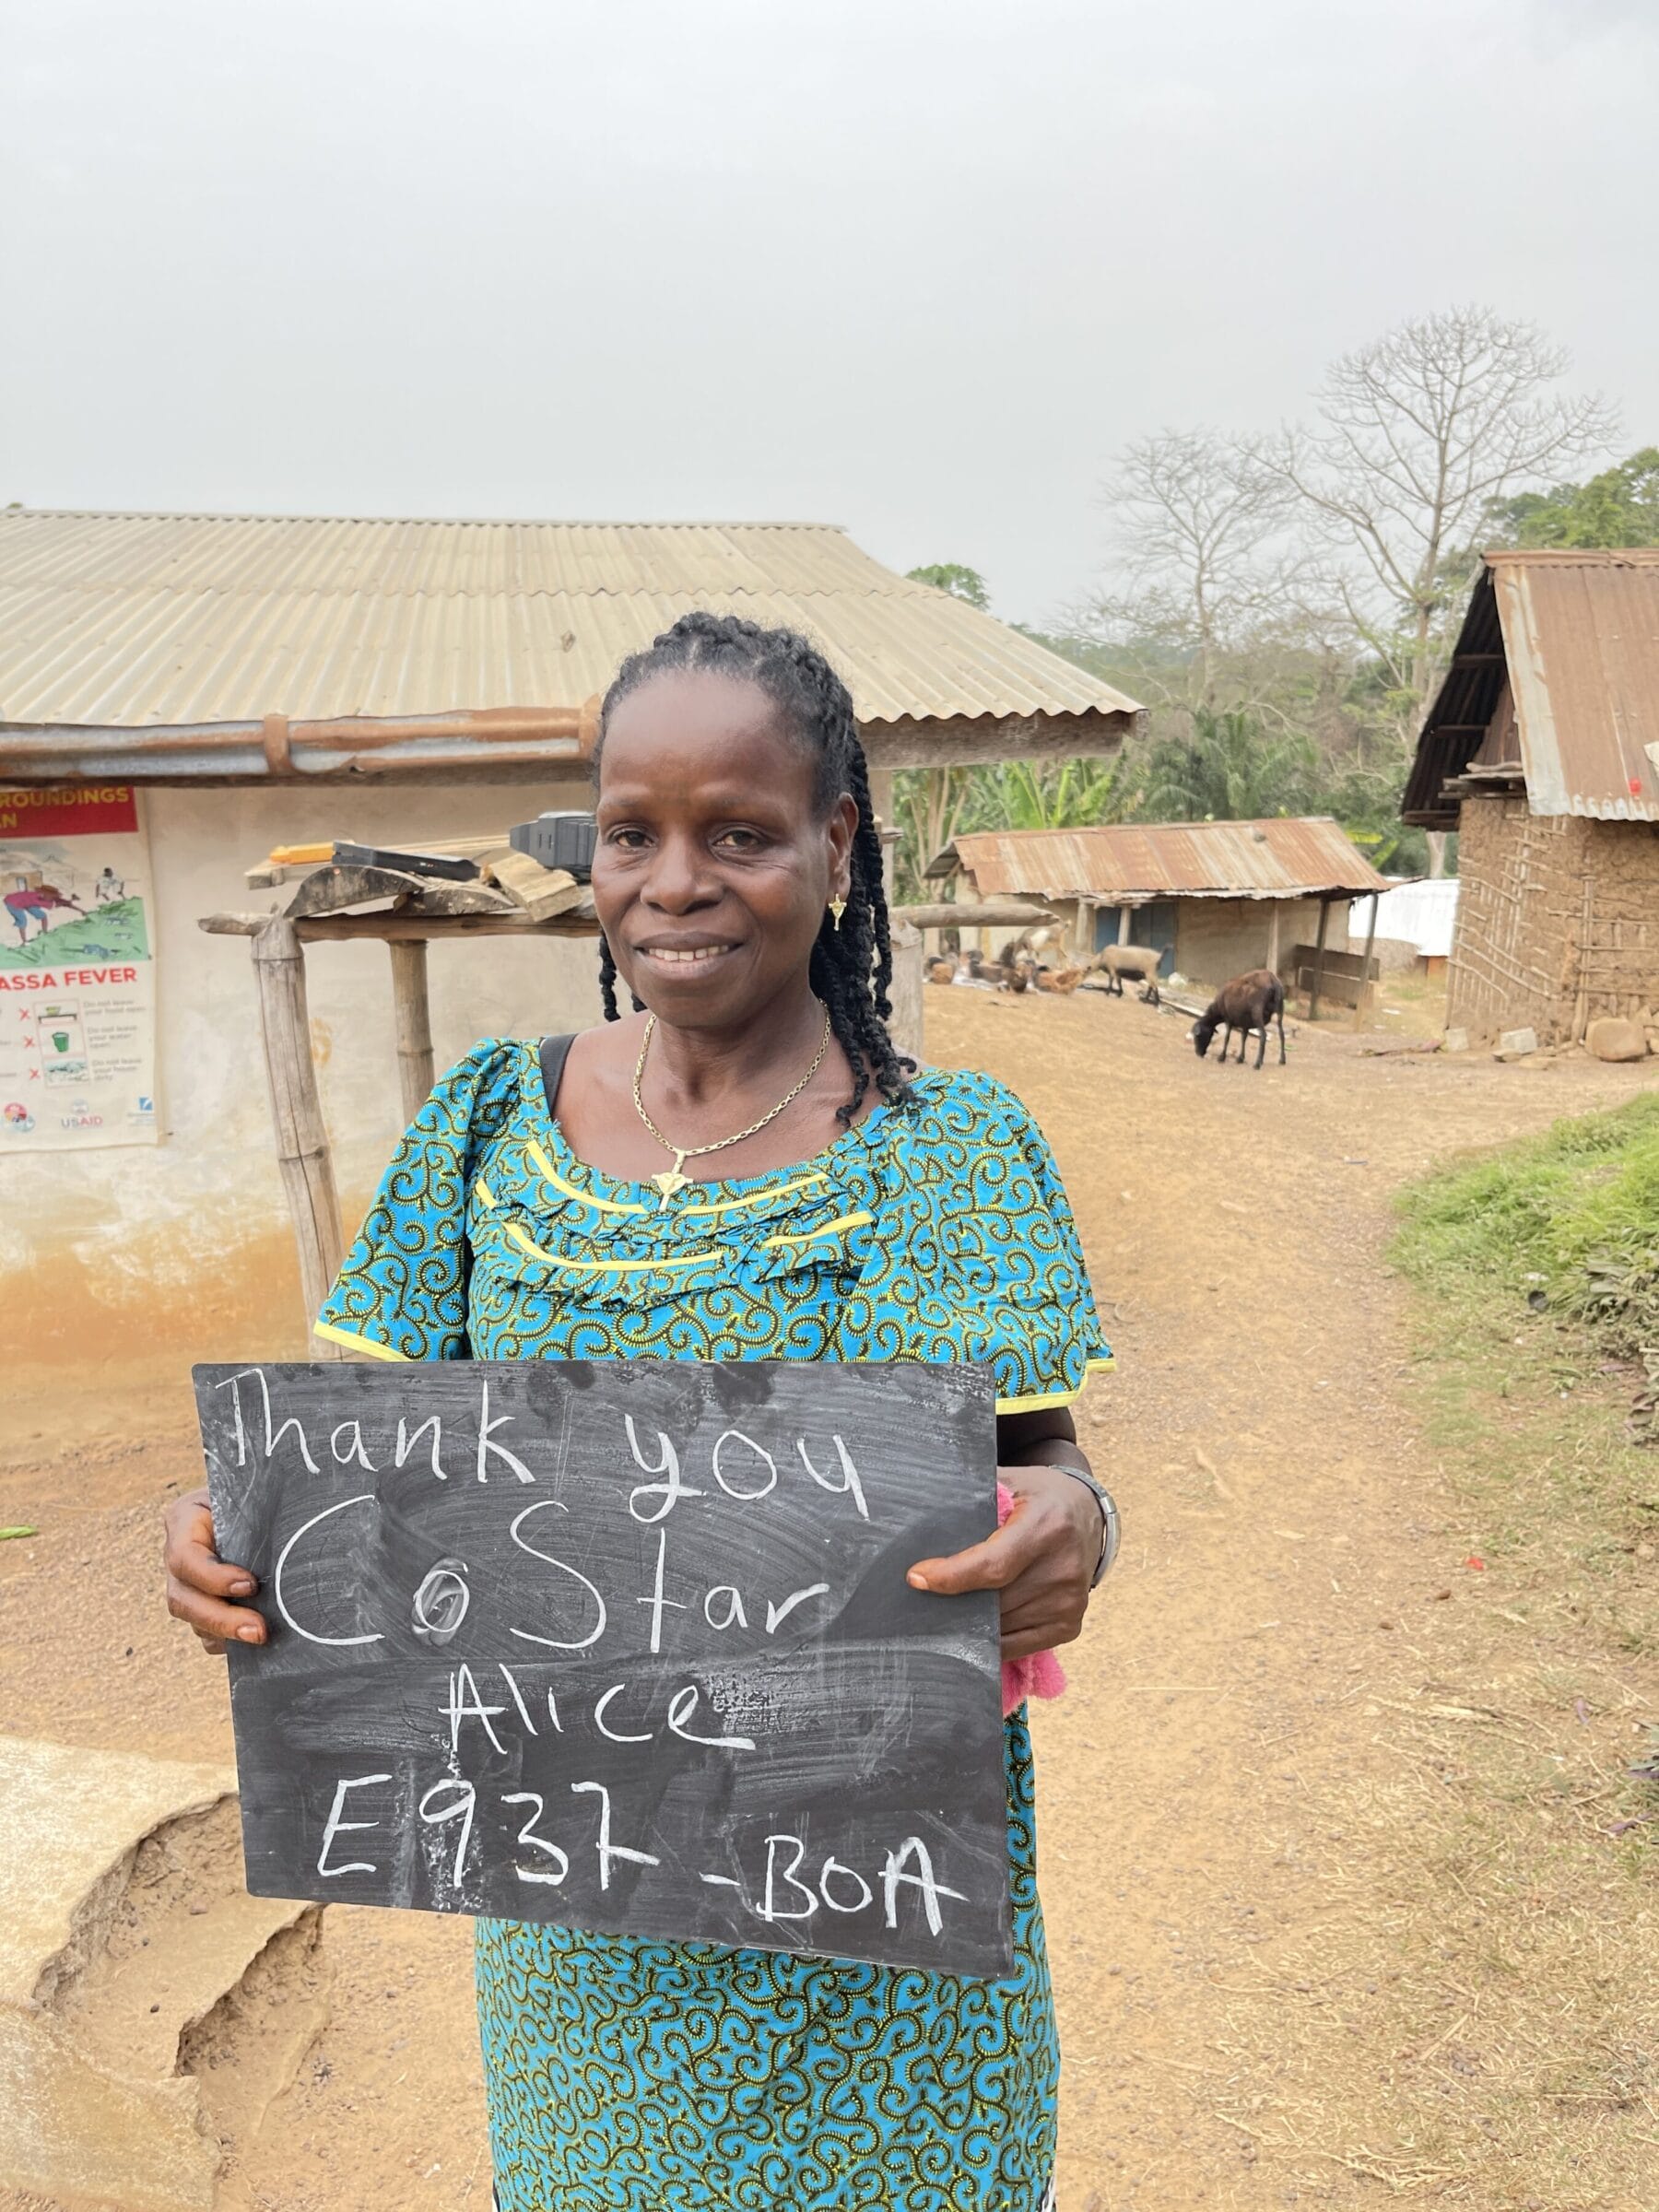 ROUNDINGS
N
ASSA FEVER
Do not leave
your food open
Do not leave
your water
open
Do not leave
your house
dirty
USAID
Thank you
CoStar
Alice
E937 -BOA